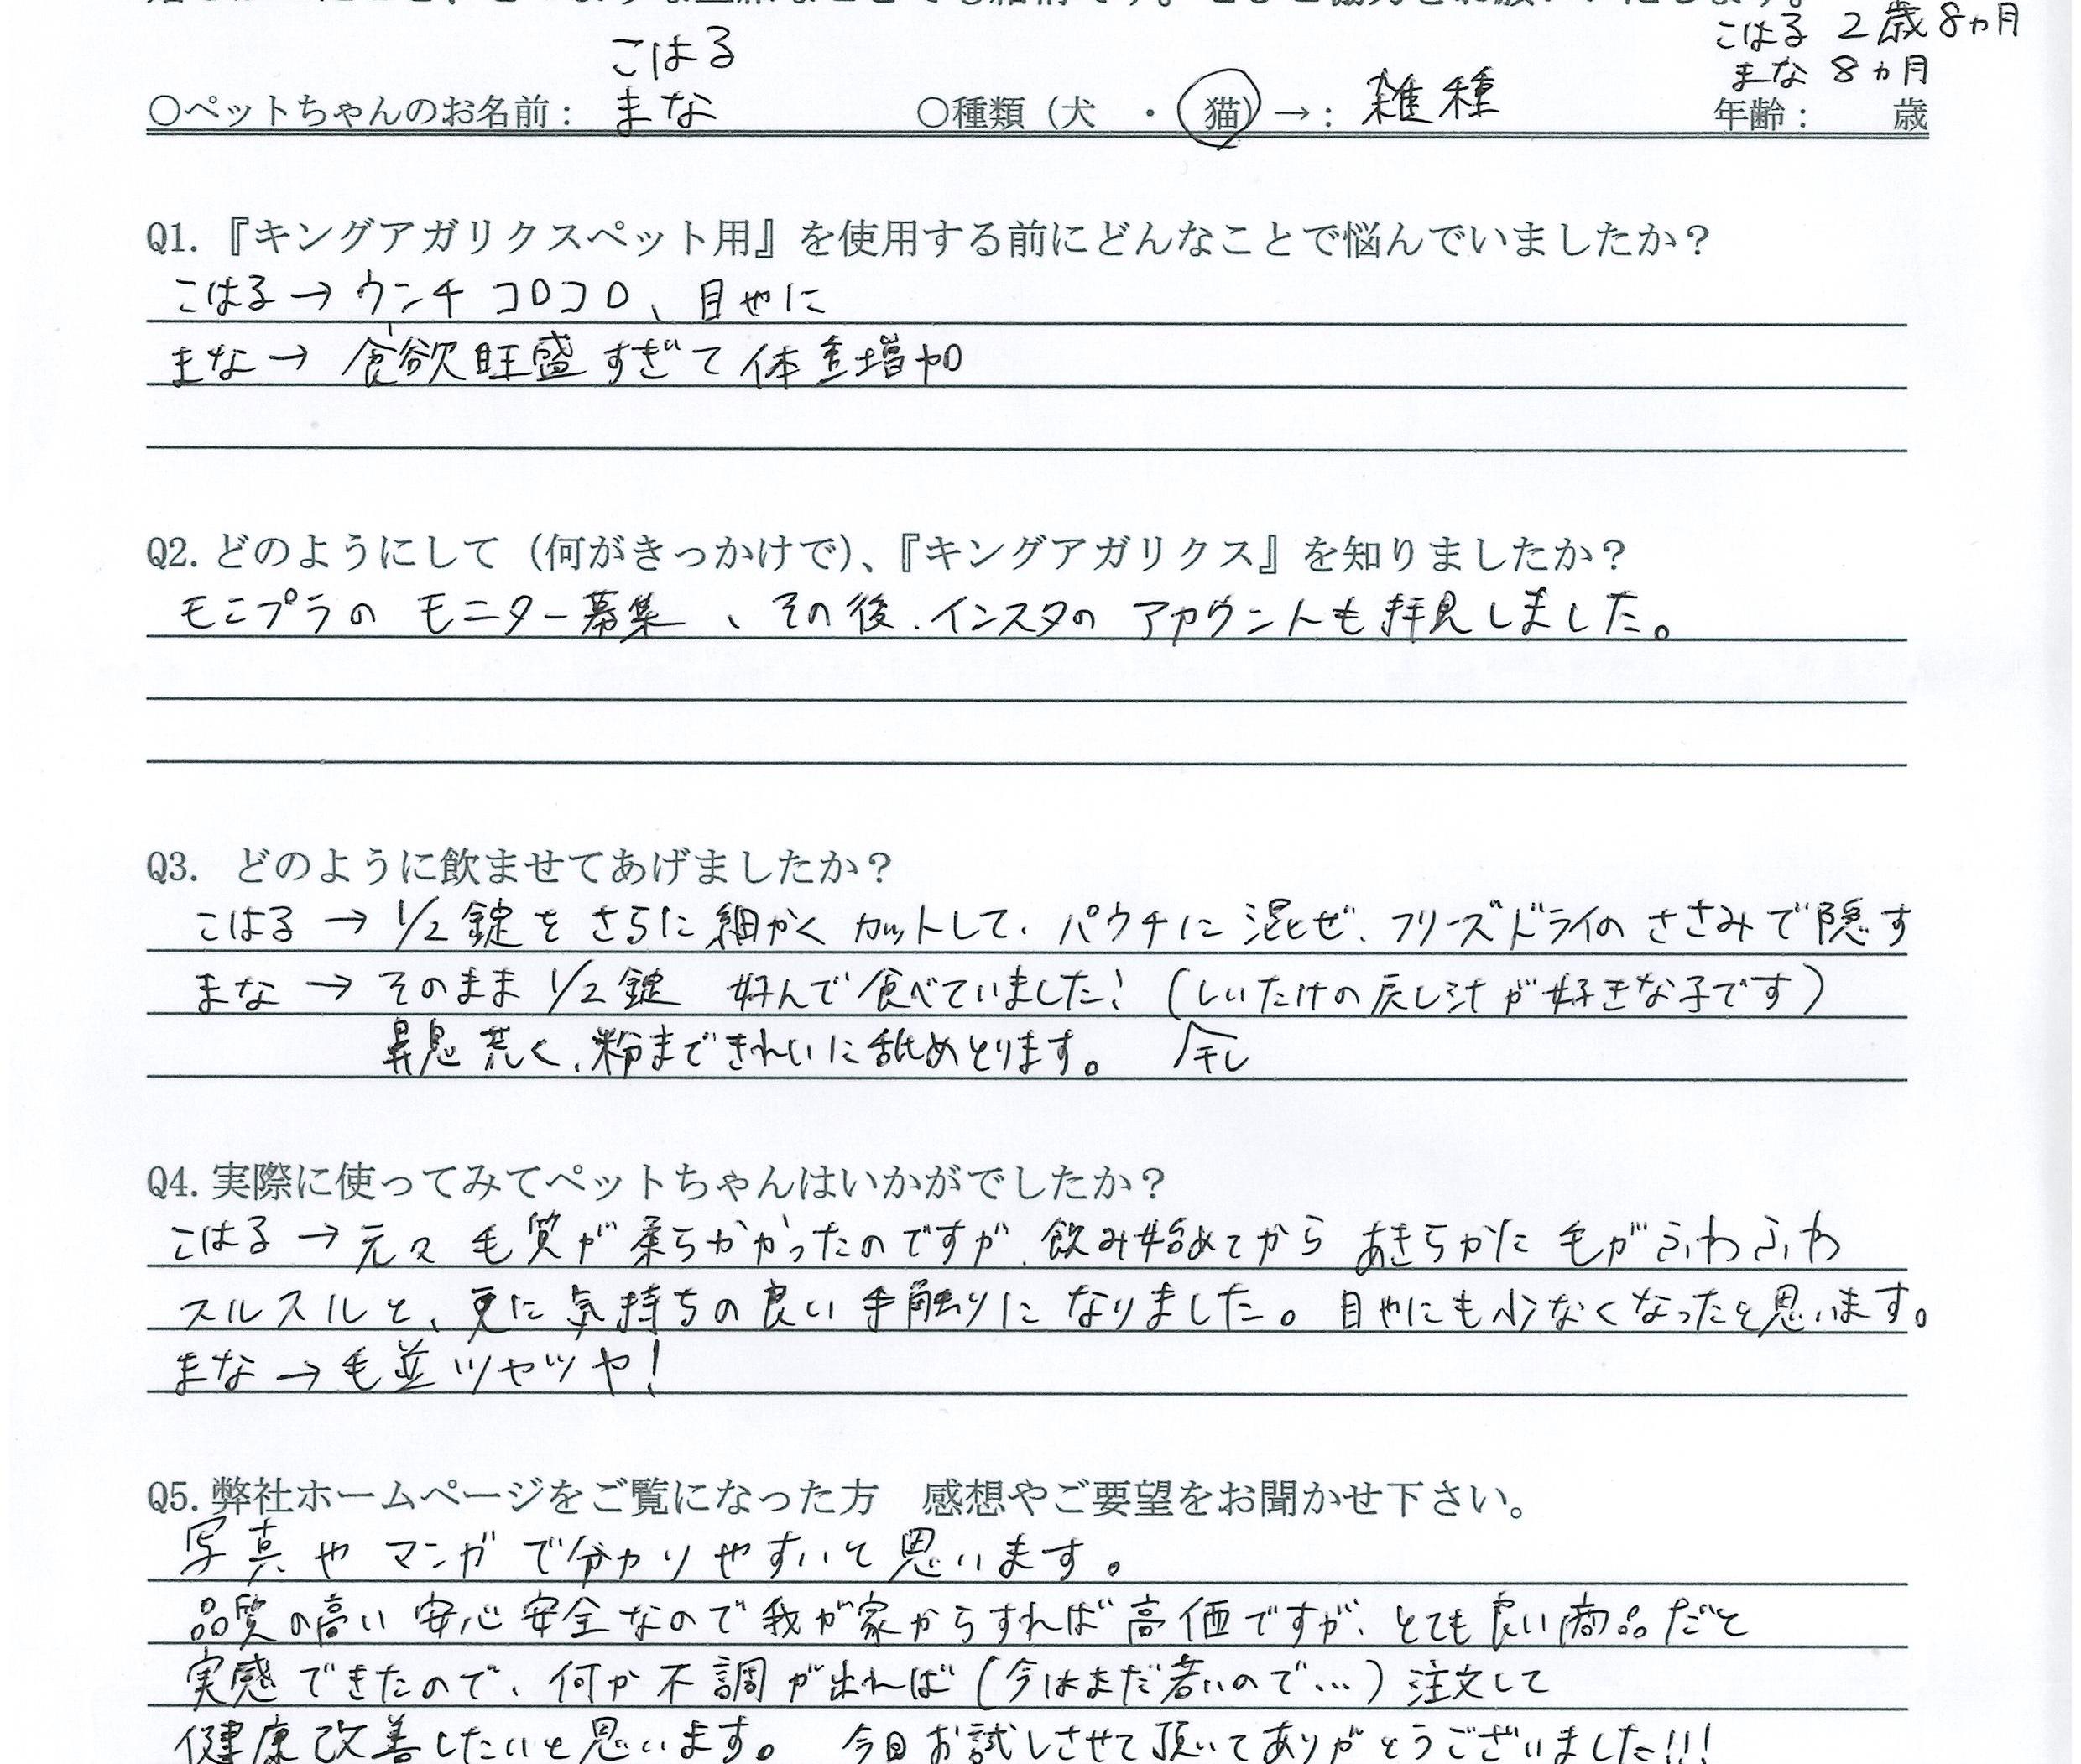 こはる 2歳8ヵ月
まな 8ヵ月
こはる
○ペットちゃんのお名前： まな ○種類（犬 ・ 猫）→： 雑種 年齢： 歳
Q1.『キングアガリクスペット用』を使用する前にどんなことで悩んでいましたか？
こはる→ウンチコロコロ、目やに
まな→食欲旺盛すぎて体重増加
Q2.どのようにして（何がきっかけで）、『キングアガリクス』を知りましたか？
モニプラのモニター募集、その後、インスタのアカウントも拝見しました。
Q3. どのように飲ませてあげましたか？
こはる→1/2錠をさらに細かくカットして、パウチに混ぜ、フリーズドライのささみで隠す
まな→そのまま1/2錠 好んで食べていました！（しいたけの戻し汁が好きな子です）
鼻息荒く、粉まできれいに舐めとります。 干し
Q4.実際に使ってみてペットちゃんはいかがでしたか？
こはる→元々毛質が柔らかかったのですが、飲み始めてからあきらかに毛がふわふわ
スルスルと、更に気持ちの良い手触りになりました。目やにも少なくなったと思います。
まな→毛並ツヤツヤ！
Q5.弊社ホームページをご覧になった方 感想やご要望をお聞かせ下さい。
写真やマンガで分かりやすいと思います。
品質の高い安心安全なので我が家からすれば高価ですが、とても良い商品だと
実感できたので、何か不調が出れば（今はまだ若いので…）注文して
健康改善したいと思います。 今回お試しさせて頂いてありがとうございました!!!